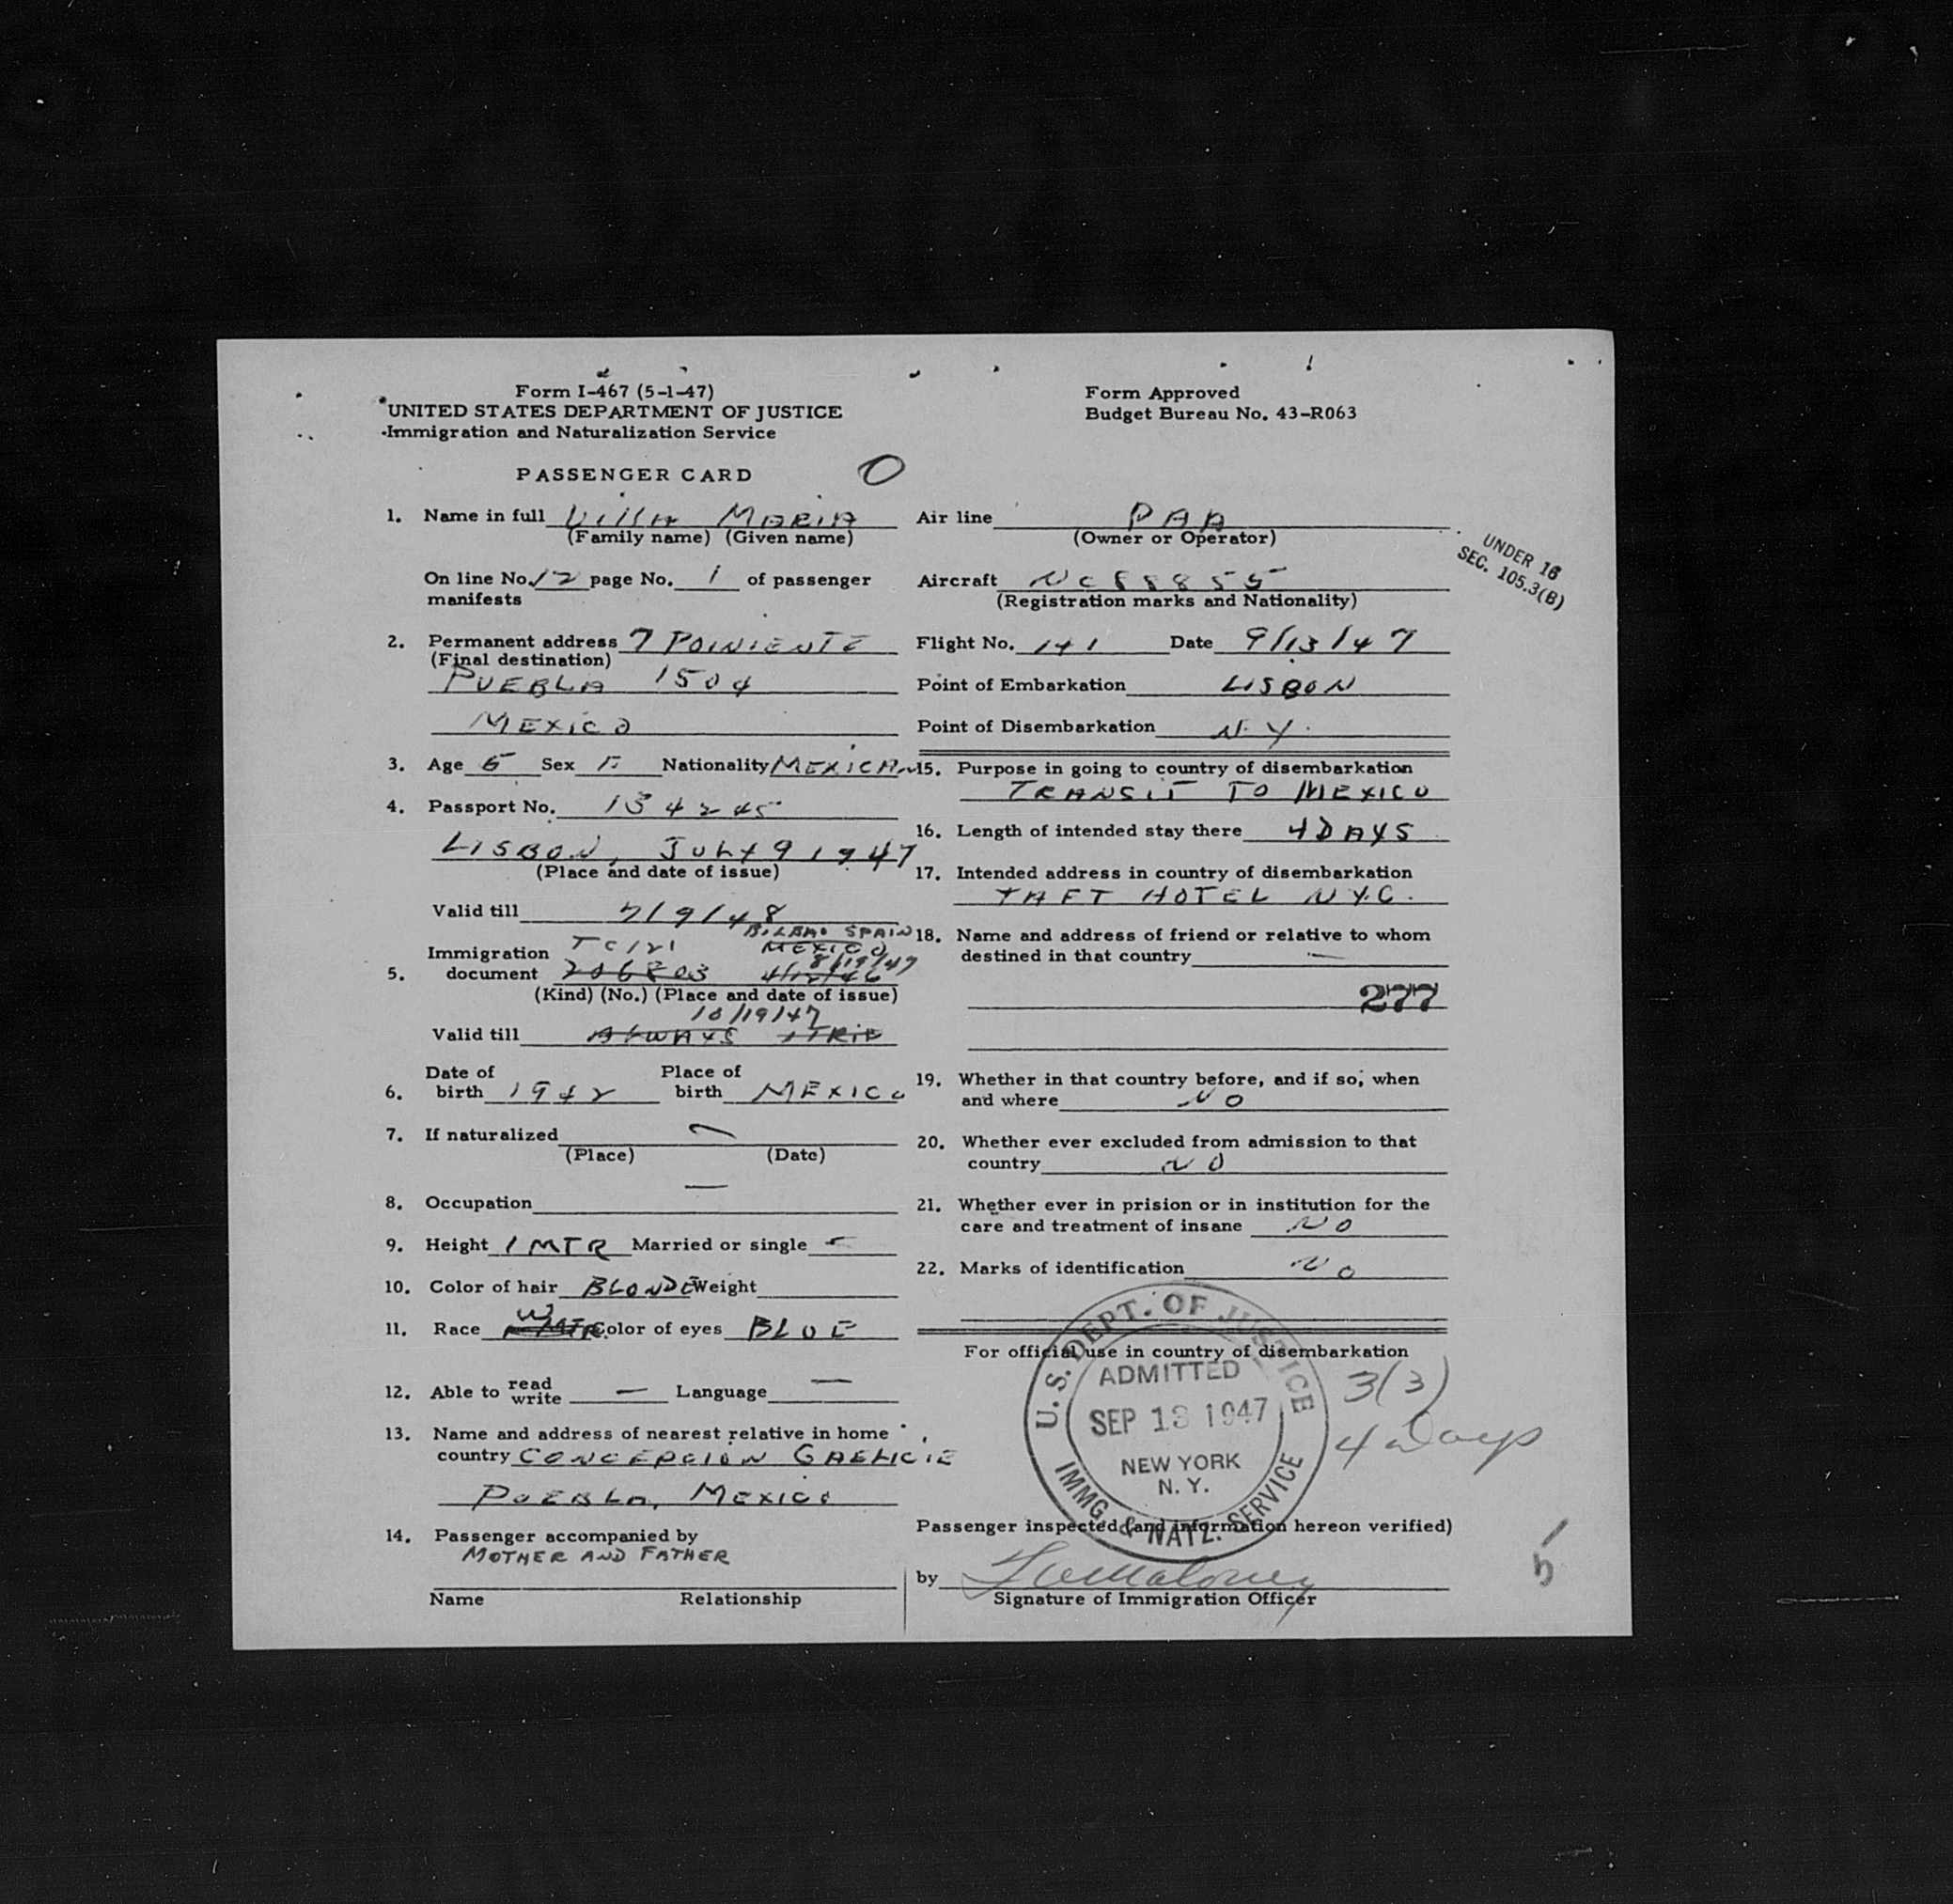 Form I-467 (5-1-47)
UNITED STATES DEPARTMENT OF JUSTICE
Immigration and Naturalization Service
Form Approved
Budget Bureau No. 43-R063
PASSENGER CARD
O
1. Name in full Villa Maria
(Family name) (Given name)
On line No. 12 page No. 1 of passenger
manifests
2. Permanent address 7 POINIENTE
(Final destination)
PUEBLA 1504
MEXICO
3. Age 5 Sex F Nationality MEXICAN
4. Passport No. 134245
LISBON, JULY 9 1947
(Place and date of issue)
Valid till 7/9/48
BILBAO SPAIN
MEXICO
8/19/47
Immigration
5. document 206803 4/12/46
(Kind) (No.) (Place and date of issue)
10/19/47
Valid till ALWAYS 1 TRIP
6. Date of birth 1942 Place of birth MEXICO
7. If naturalized —
(Place) (Date)
8. Occupation —
9. Height 1 MTR Married or single
10. Color of hair BLONDE Weight
11. Race W Color of eyes BLUE
12. Able to read write — Language —
13. Name and address of nearest relative in home
country CONCEPCION
PUEBLA, MEXICO
14. Passenger accompanied by
MOTHER AND FATHER
Name Relationship
Air line PAA
(Owner or Operator)
Aircraft NC88855
(Registration marks and Nationality)
UNDER 16
SEC. 105.3(B)
Flight No. 141 Date 9/13/47
Point of Embarkation LISBON
Point of Disembarkation N.Y.
15. Purpose in going to country of disembarkation
TRANSIT TO MEXICO
16. Length of intended stay there 4 DAYS
17. Intended address in country of disembarkation
TAFT HOTEL N.Y.C.
18. Name and address of friend or relative to whom
destined in that country —
277
19. Whether in that country before, and if so, when
and where NO
20. Whether ever excluded from admission to that
country NO
21. Whether ever in prision or in institution for the
care and treatment of insane NO
22. Marks of identification NO
For official use in country of disembarkation
U.S. DEPT. OF JUSTICE
ADMITTED
SEP 13 1947
NEW YORK
N. Y.
IMMG. & NATZ. SERVICE
3(3)
4 Days
Passenger inspected (and information hereon verified)
by
Signature of Immigration Officer
5